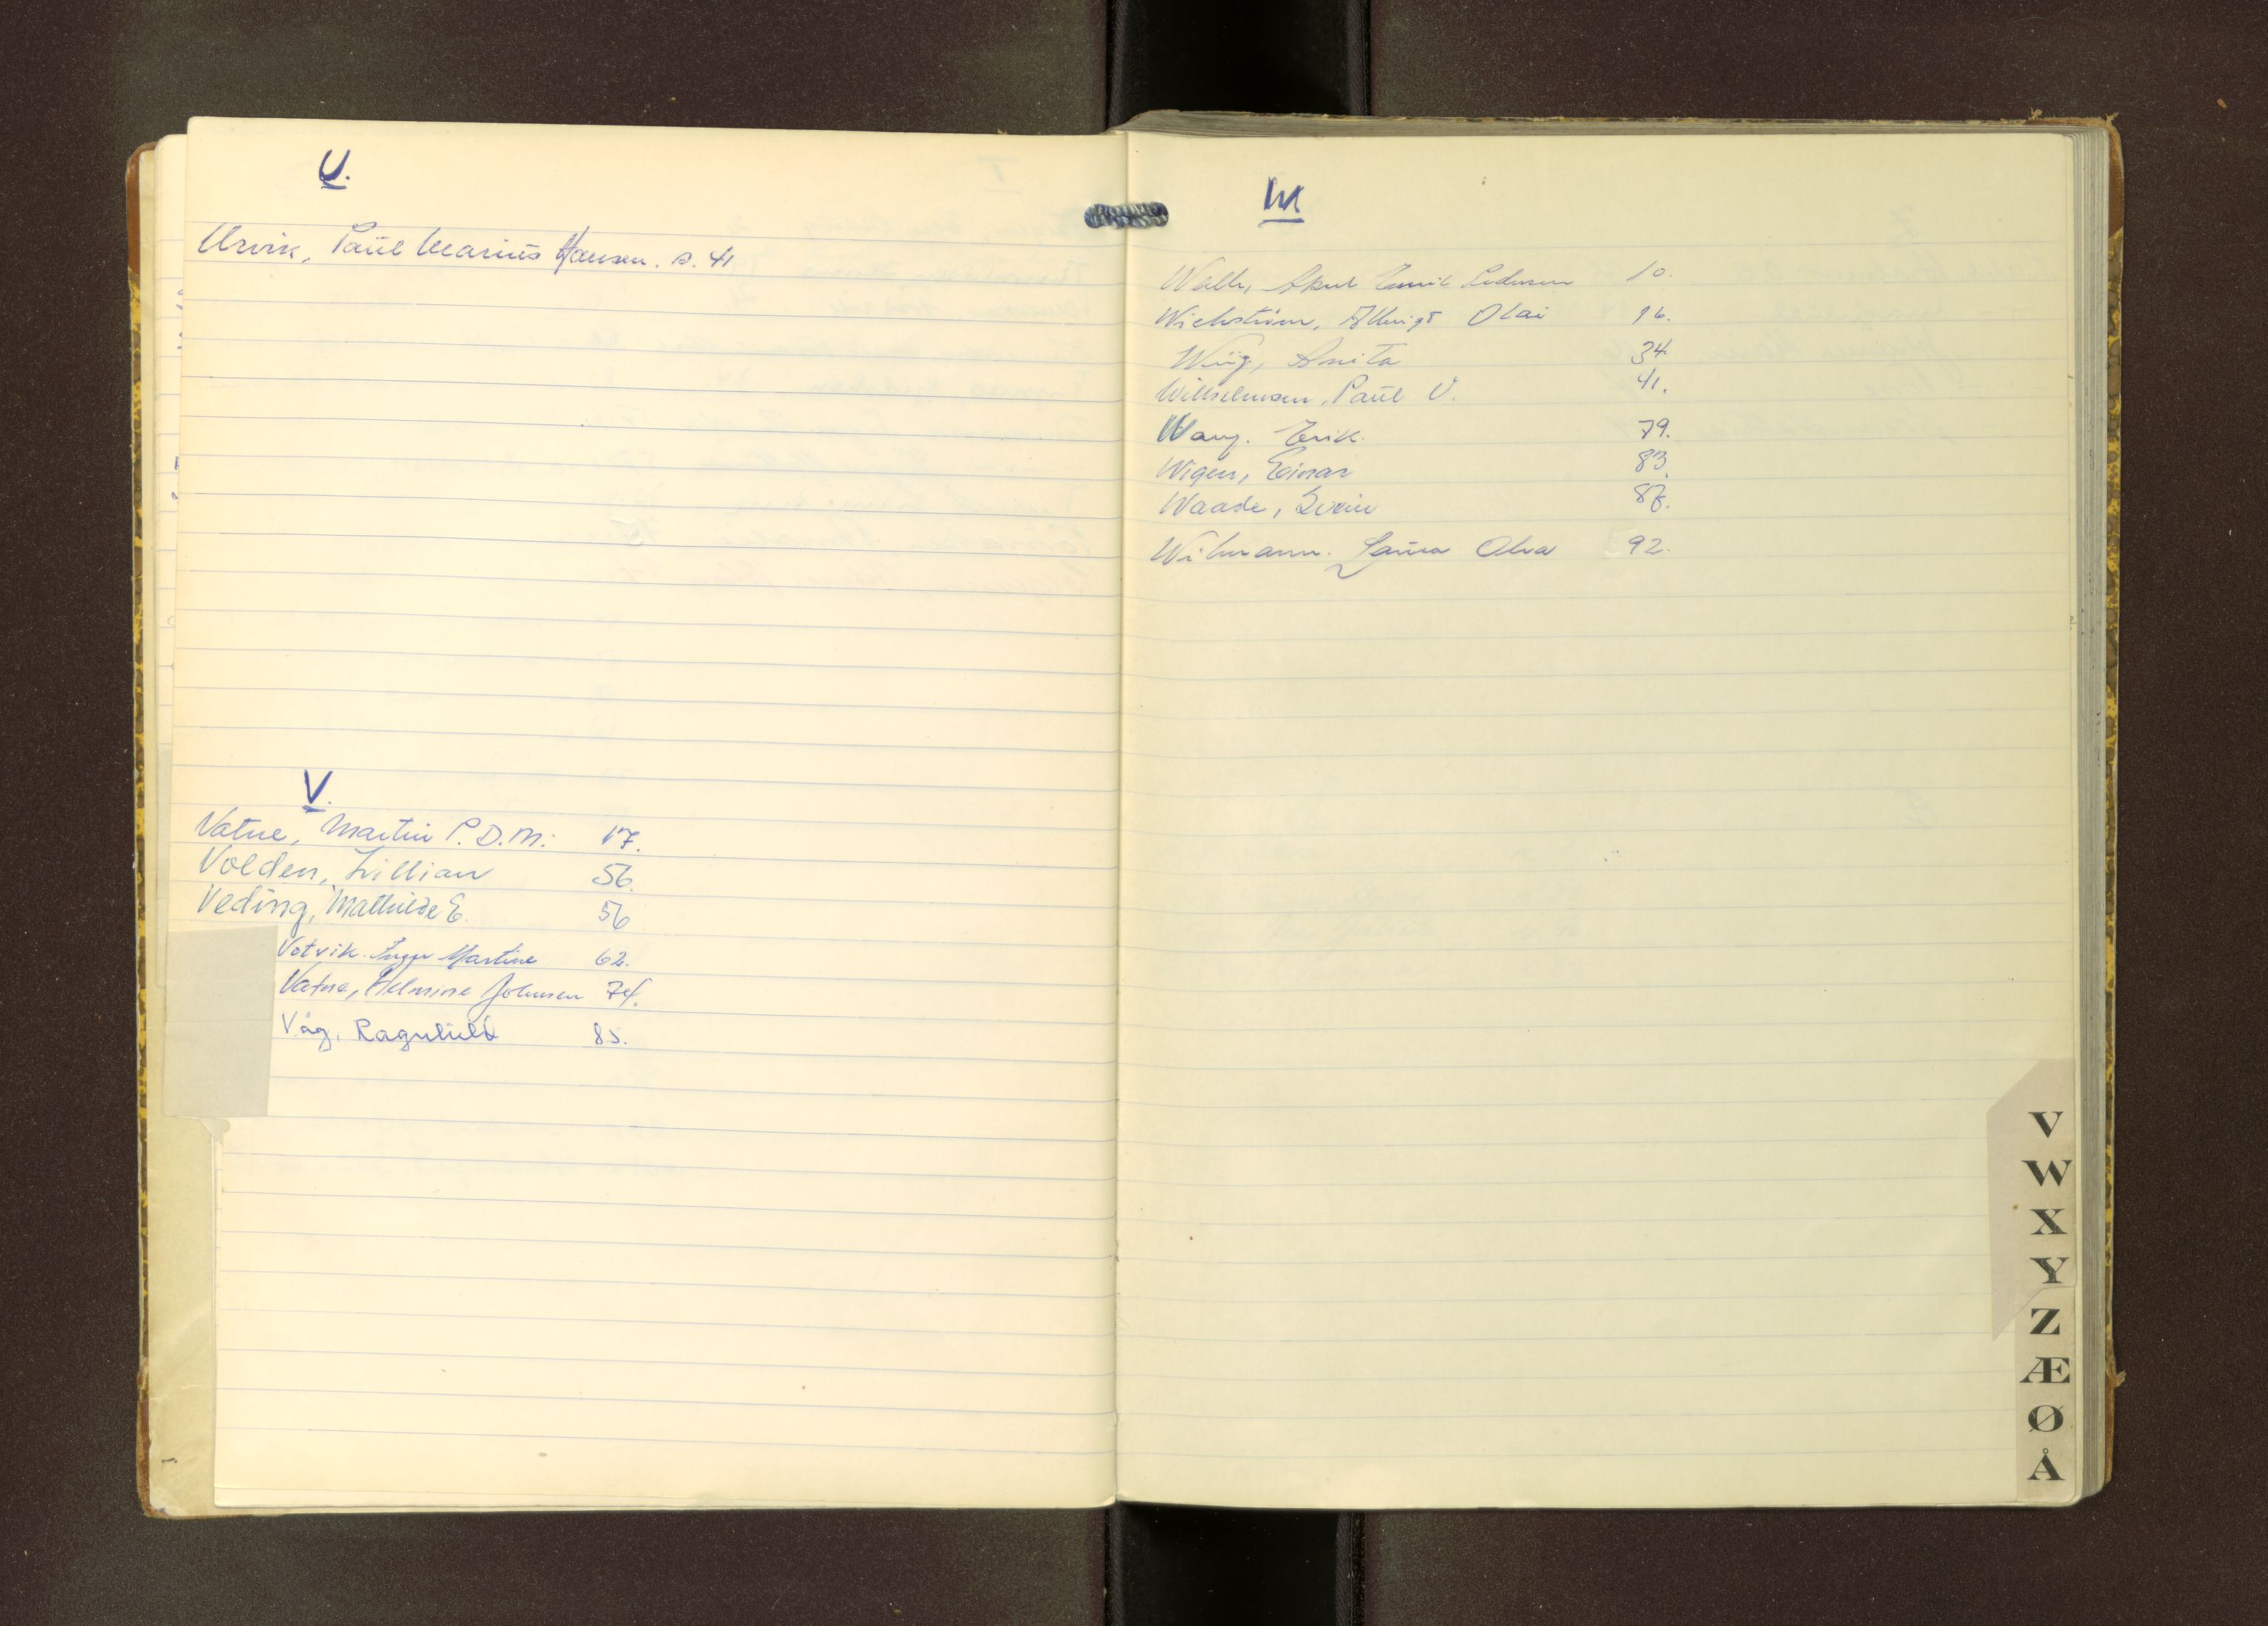 U.
Urvik, Paul Marius Hansen. s. 41
V.
Vatne, Martin P.D.M. 17.
Volden, Lillian 56.
Veding, Mathilde E. 56
Votvik. Inger Martine 62.
Vatne, Helmine Johnsen 74.
Våg, Ragnhild 85.
W
Emil Pedersen 10.
Wickström, Olai 96.
Wiig, Anita 34.
Wilhelmsen, Paul V. 41.
Wang. Erik. 79.
Wigen, Einar 83.
Waade, Svein 87.
Wilmann. Laura Olea 92.
V
W
X
Y
Z
Æ
Ø
Å